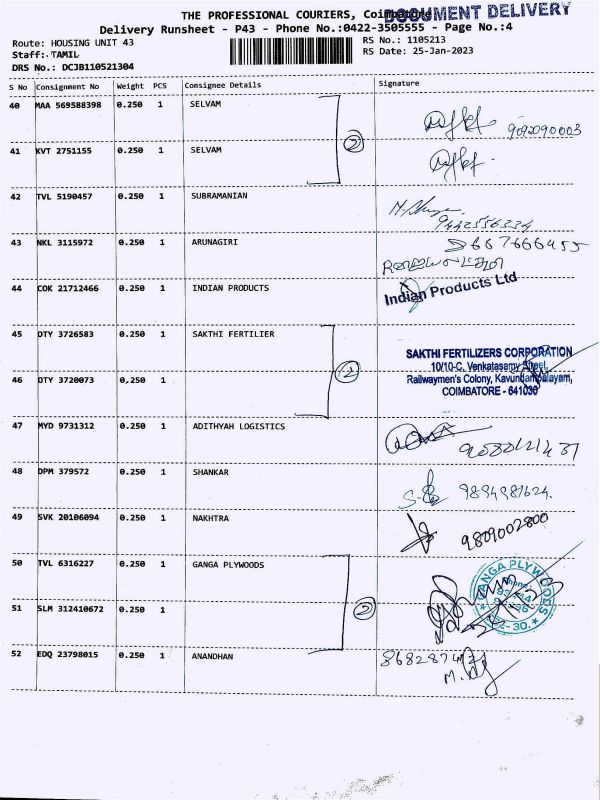 THE PROFESSIONAL COURIERS, Coimbatore
DOCUMENT DELIVERY
Delivery Runsheet - P43 - Phone No.:0422-3505555 - Page No.:4
Route: HOUSING UNIT 43
RS No.: 1105213
Staff: TAMIL
RS Date: 25-Jan-2023
DRS No.: DCJB110521304
S No Consignment No Weight PCS Consignee Details Signature
40 MAA 569588398 0.250 1 SELVAM
9092090003
2
41 KVT 2751155 0.250 1 SELVAM
42 TVL 5190457 0.250 1 SUBRAMANIAN
9442556334
43 NKL 3115972 0.250 1 ARUNAGIRI
44 COK 21712466 0.250 1 INDIAN PRODUCTS
Indian Products Ltd
45 DTY 3726583 0.250 1 SAKTHI FERTILIER
SAKTHI FERTILIZERS CORPORATION
10/10-C, Venkatasamy Street,
Railwaymen's Colony, Kavundampalayam,
COIMBATORE - 641030
2
46 DTY 3720073 0.250 1
47 MYD 9731312 0.250 1 ADITHYAH LOGISTICS
48 DPM 379572 0.250 1 SHANKAR
49 SVK 20106094 0.250 1 NAKHTRA
9809002800
50 TVL 6316227 0.250 1 GANGA PLYWOODS
GANGA PLYWOODES
Phone:
2
51 SLM 312410672 0.250 1
52 EDQ 23798015 0.250 1 ANANDHAN